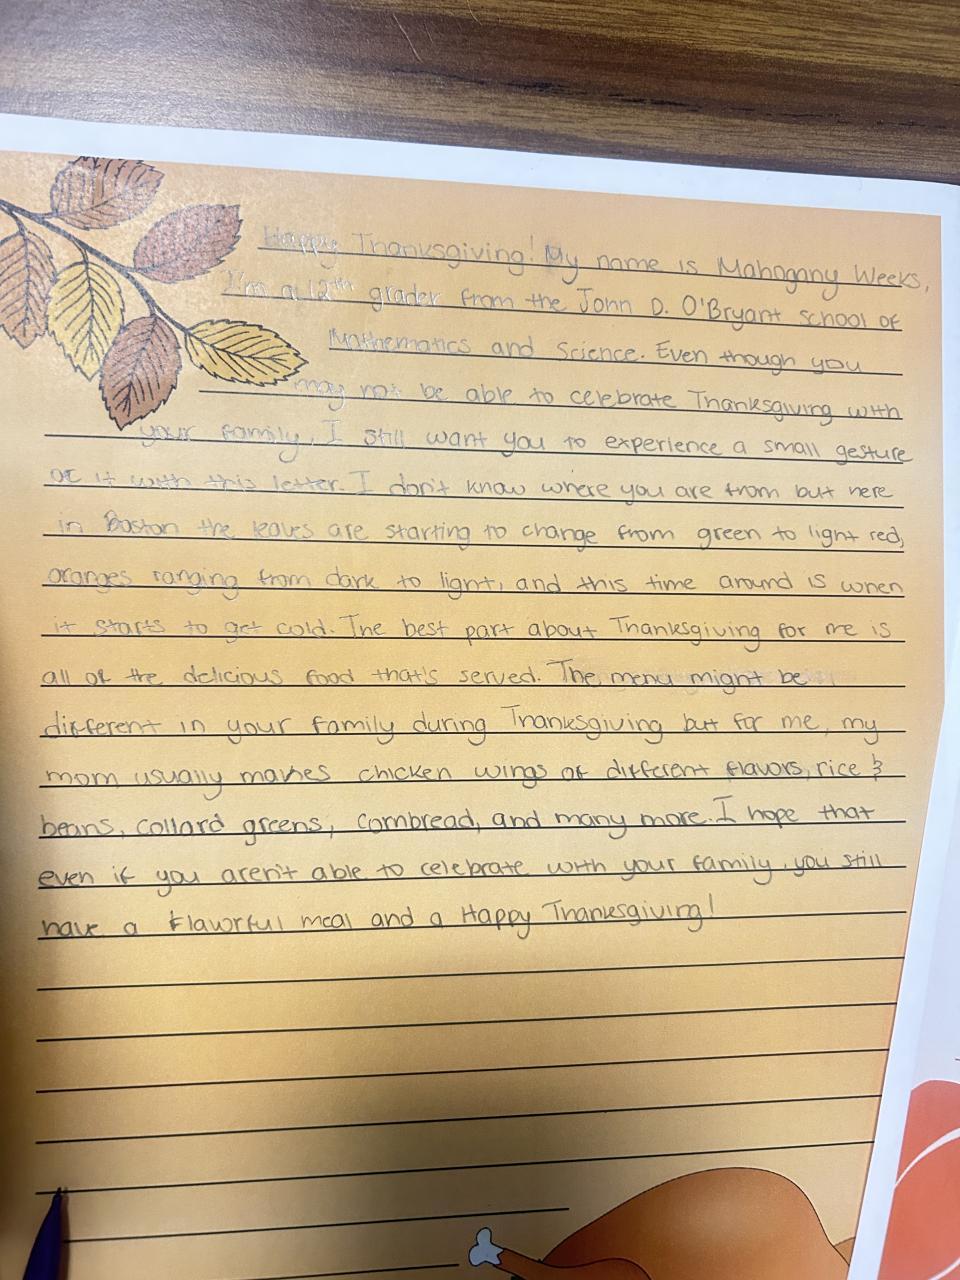 Happy Thanksgiving! My name is Mahogany Weeks,
I'm a 12th grader from the John D. O'Bryant school of
Mathematics and Science. Even though you
may not be able to celebrate Thanksgiving with
your family, I still want you to experience a small gesture
of it with this letter. I don't know where you are from but here
in Boston the leaves are starting to change from green to light red,
oranges ranging from dark to light, and this time around is when
it starts to get cold. The best part about Thanksgiving for me is
all of the delicious food that's served. The menu might be
different in your family during Thanksgiving but for me, my
mom usually makes chicken wings of different flavors, rice &
beans, collard greens, cornbread, and many more. I hope that
even if you aren't able to celebrate with your family, you still
have a flavorful meal and a Happy Thanksgiving!